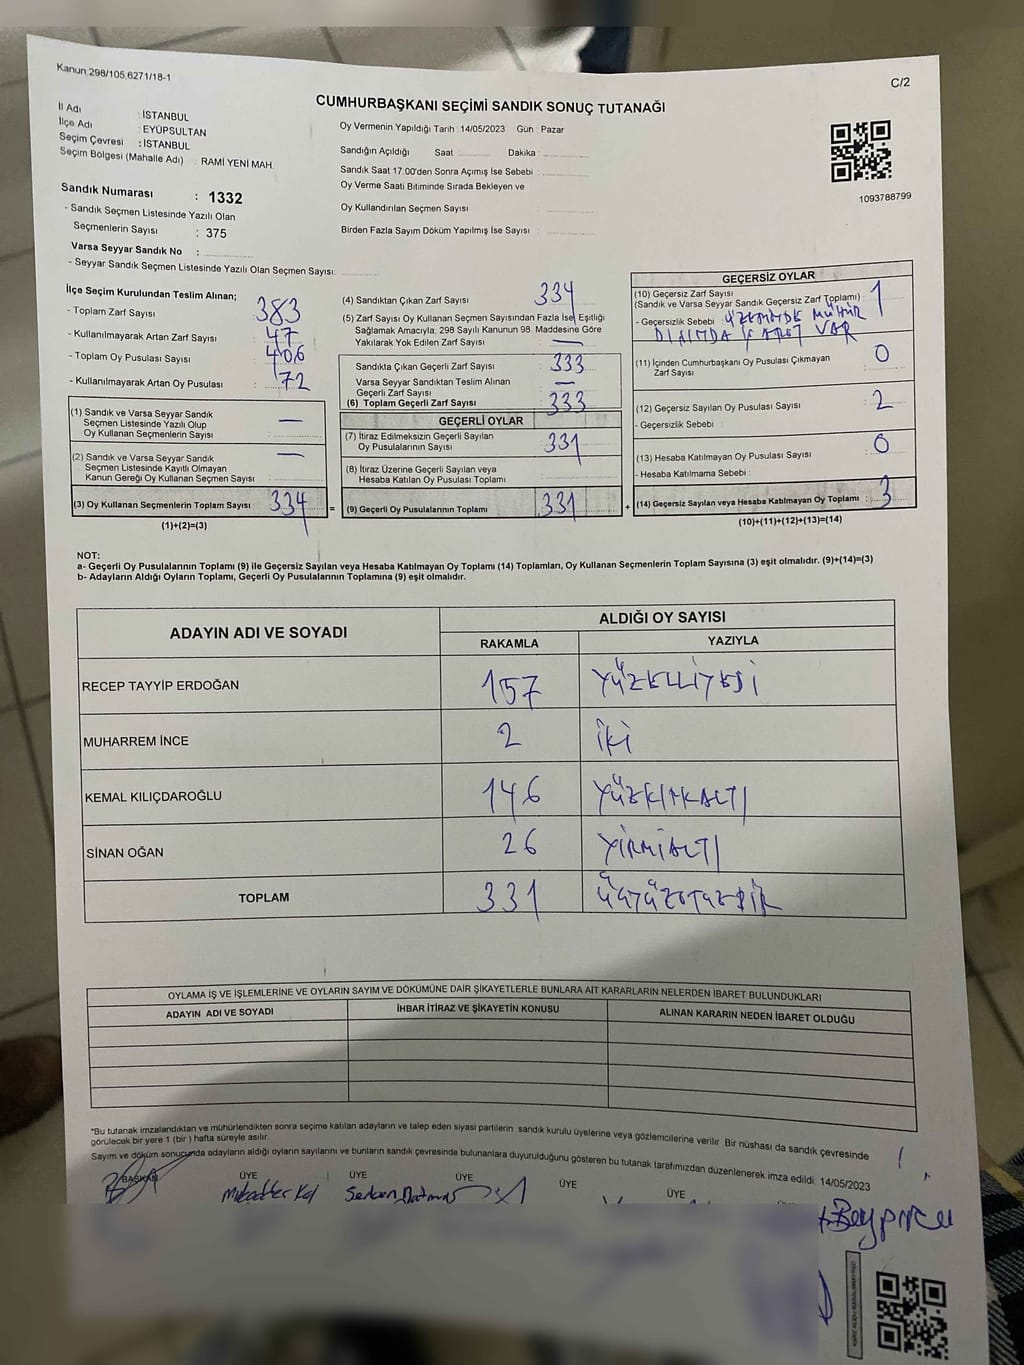 Kanun:298/105,6271/18-1
C/2
CUMHURBAŞKANI SEÇİMİ SANDIK SONUÇ TUTANAĞI
İl Adı : İSTANBUL
İlçe Adı : EYÜPSULTAN
Seçim Çevresi : İSTANBUL
Seçim Bölgesi (Mahalle Adı) : RAMİ YENİ MAH.
Sandık Numarası : 1332
- Sandık Seçmen Listesinde Yazılı Olan
Seçmenlerin Sayısı : 375
Varsa Seyyar Sandık No :
- Seyyar Sandık Seçmen Listesinde Yazılı Olan Seçmen Sayısı:
Oy Vermenin Yapıldığı Tarih :14/05/2023 Gün : Pazar
Sandığın Açıldığı Saat Dakika
Sandık Saat 17:00'den Sonra Açımış İse Sebebi :
Oy Verme Saati Bitiminde Sırada Bekleyen ve
Oy Kullandırılan Seçmen Sayısı :
Birden Fazla Sayım Döküm Yapılmış İse Sayısı :
1093788799
İlçe Seçim Kurulundan Teslim Alınan;
- Toplam Zarf Sayısı : 383
- Kullanılmayarak Artan Zarf Sayısı : 47
- Toplam Oy Pusulası Sayısı : 406
- Kullanılmayarak Artan Oy Pusulası : 72
(1) Sandık ve Varsa Seyyar Sandık
Seçmen Listesinde Yazılı Olup
Oy Kullanan Seçmenlerin Sayısı : —
(2) Sandık ve Varsa Seyyar Sandık
Seçmen Listesinde Kayıtlı Olmayan
Kanun Gereği Oy Kullanan Seçmen Sayısı : —
(3) Oy Kullanan Seçmenlerin Toplam Sayısı : 334
(1)+(2)=(3)
=
(4) Sandıktan Çıkan Zarf Sayısı : 334
(5) Zarf Sayısı Oy Kullanan Seçmen Sayısından Fazla İse, Eşitliği
Sağlamak Amacıyla; 298 Sayılı Kanunun 98. Maddesine Göre
Yakılarak Yok Edilen Zarf Sayısı : —
Sandıkta Çıkan Geçerli Zarf Sayısı : 333
Varsa Seyyar Sandıktan Teslim Alınan
Geçerli Zarf Sayısı : —
(6) Toplam Geçerli Zarf Sayısı : 333
GEÇERLİ OYLAR
(7) İtiraz Edilmeksizin Geçerli Sayılan
Oy Pusulalarının Sayısı : 331
(8) İtiraz Üzerine Geçerli Sayılan veya
Hesaba Katılan Oy Pusulası Toplamı :
(9) Geçerli Oy Pusulalarının Toplamı : 331
+
GEÇERSİZ OYLAR
(10) Geçersiz Zarf Sayısı
(Sandık ve Varsa Seyyar Sandık Geçersiz Zarf Toplamı) : 1
- Geçersizlik Sebebi : ÜZERİNDE MÜHÜR
DIŞINDA İŞARET VAR
(11) İçinden Cumhurbaşkanı Oy Pusulası Çıkmayan
Zarf Sayısı : 0
(12) Geçersiz Sayılan Oy Pusulası Sayısı : 2
- Geçersizlik Sebebi :
(13) Hesaba Katılmayan Oy Pusulası Sayısı : 0
- Hesaba Katılmama Sebebi :
(14) Geçersiz Sayılan veya Hesaba Katılmayan Oy Toplamı : 3
(10)+(11)+(12)+(13)=(14)
NOT:
a- Geçerli Oy Pusulalarının Toplamı (9) ile Geçersiz Sayılan veya Hesaba Katılmayan Oy Toplamı (14) Toplamları, Oy Kullanan Seçmenlerin Toplam Sayısına (3) eşit olmalıdır. (9)+(14)=(3)
b- Adayların Aldığı Oyların Toplamı, Geçerli Oy Pusulalarının Toplamına (9) eşit olmalıdır.
ADAYIN ADI VE SOYADI ALDIĞI OY SAYISI
RAKAMLA YAZIYLA
RECEP TAYYİP ERDOĞAN 157 YÜZELLİYEDİ
MUHARREM İNCE 2 İKİ
KEMAL KILIÇDAROĞLU 146 YÜZKIRKALTI
SİNAN OĞAN 26 YİRMİALTI
TOPLAM 331 ÜÇYÜZOTUZBİR
OYLAMA İŞ VE İŞLEMLERİNE VE OYLARIN SAYIM VE DÖKÜMÜNE DAİR ŞİKAYETLERLE BUNLARA AİT KARARLARIN NELERDEN İBARET BULUNDUKLARI
ADAYIN ADI VE SOYADI İHBAR İTİRAZ VE ŞİKAYETİN KONUSU ALINAN KARARIN NEDEN İBARET OLDUĞU
*Bu tutanak imzalandıktan ve mühürlendikten sonra seçime katılan adayların ve talep eden siyasi partilerin sandık kurulu üyelerine veya gözlemcilerine verilir. Bir nüshası da sandık çevresinde
görülecek bir yere 1 (bir ) hafta süreyle asılır.
Sayım ve döküm sonucunda adayların aldığı oyların sayılarını ve bunların sandık çevresinde bulunanlara duyurulduğunu gösteren bu tutanak tarafımızdan düzenlenerek imza edildi. 14/05/2023
BAŞKAN ÜYE ÜYE ÜYE ÜYE ÜYE